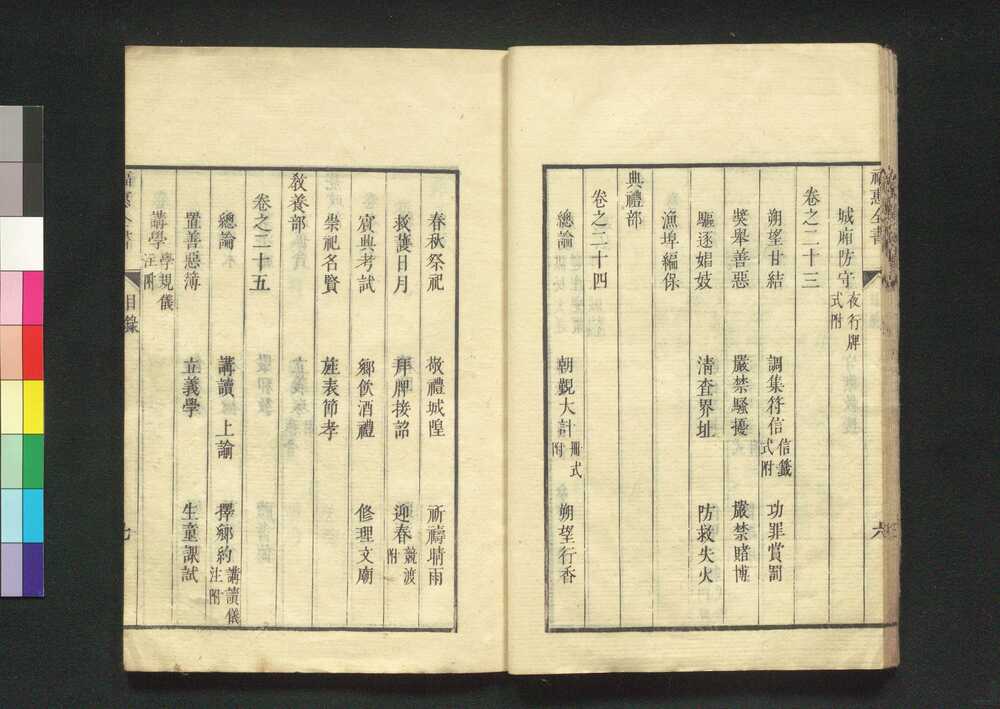 福惠全書
六
城廂防守 夜行牌式附
卷之二十三
朔望甘結 調集符信 信籤式附 功罪賞罰
奬舉善惡 嚴禁騷擾 嚴禁賭博
驅逐娼妓 清査界址 防救失火
漁埠編保
典禮部
卷之二十四
總論 朝觀大計 冊式附 朔望行香
春秋祭祀 敬禮城隍 祈禱晴雨
救護日月 拜牌接詔 迎春 競渡附
賓典考試 鄉飲酒禮 修理文廟
崇祀名賢 旌表節孝
敎養部
卷之二十五
總論 講讀 上諭 擇鄉約 講讀儀注附
置善惡簿 立義學 生童課試
講學 學規儀注附
福惠全書 目錄 七